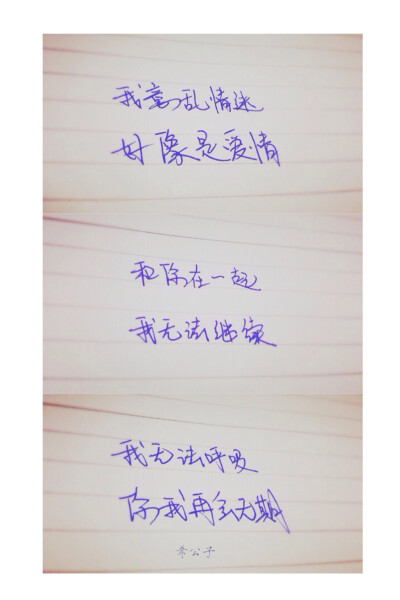 我意乱情迷
好像是爱情
和你在一起
我无法继续
我无法呼吸
你我再会无期
希公子